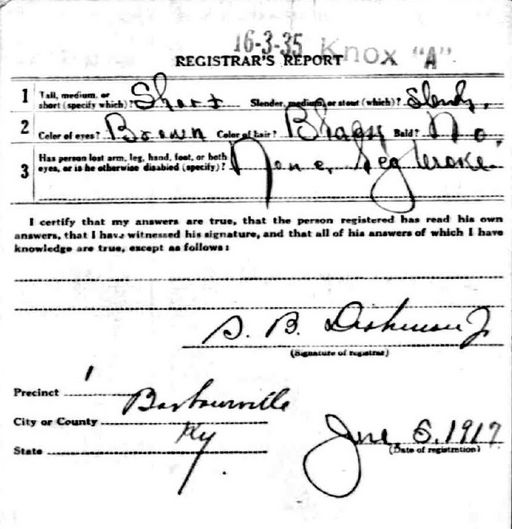 16-3-35 Knox "A"
REGISTRAR'S REPORT
1 Tall, medium, or short (specify which)? Short Slender, medium, or stout (which)? Slender
2 Color of eyes? Brown Color of hair? Bald? No
3 Has person lost arm, leg, hand, foot, or both eyes, or is he otherwise disabled (specify)? None, Leg broke
I certify that my answers are true, that the person registered has read his own
answers, that I have witnessed his signature, and that all of his answers of which I have
knowledge are true, except as follows:
S. B. Dishman Jr
(Signature of registrar)
Precinct 1
City or County Barbourville
State Ky.
June 5, 1917
(Date of registration)